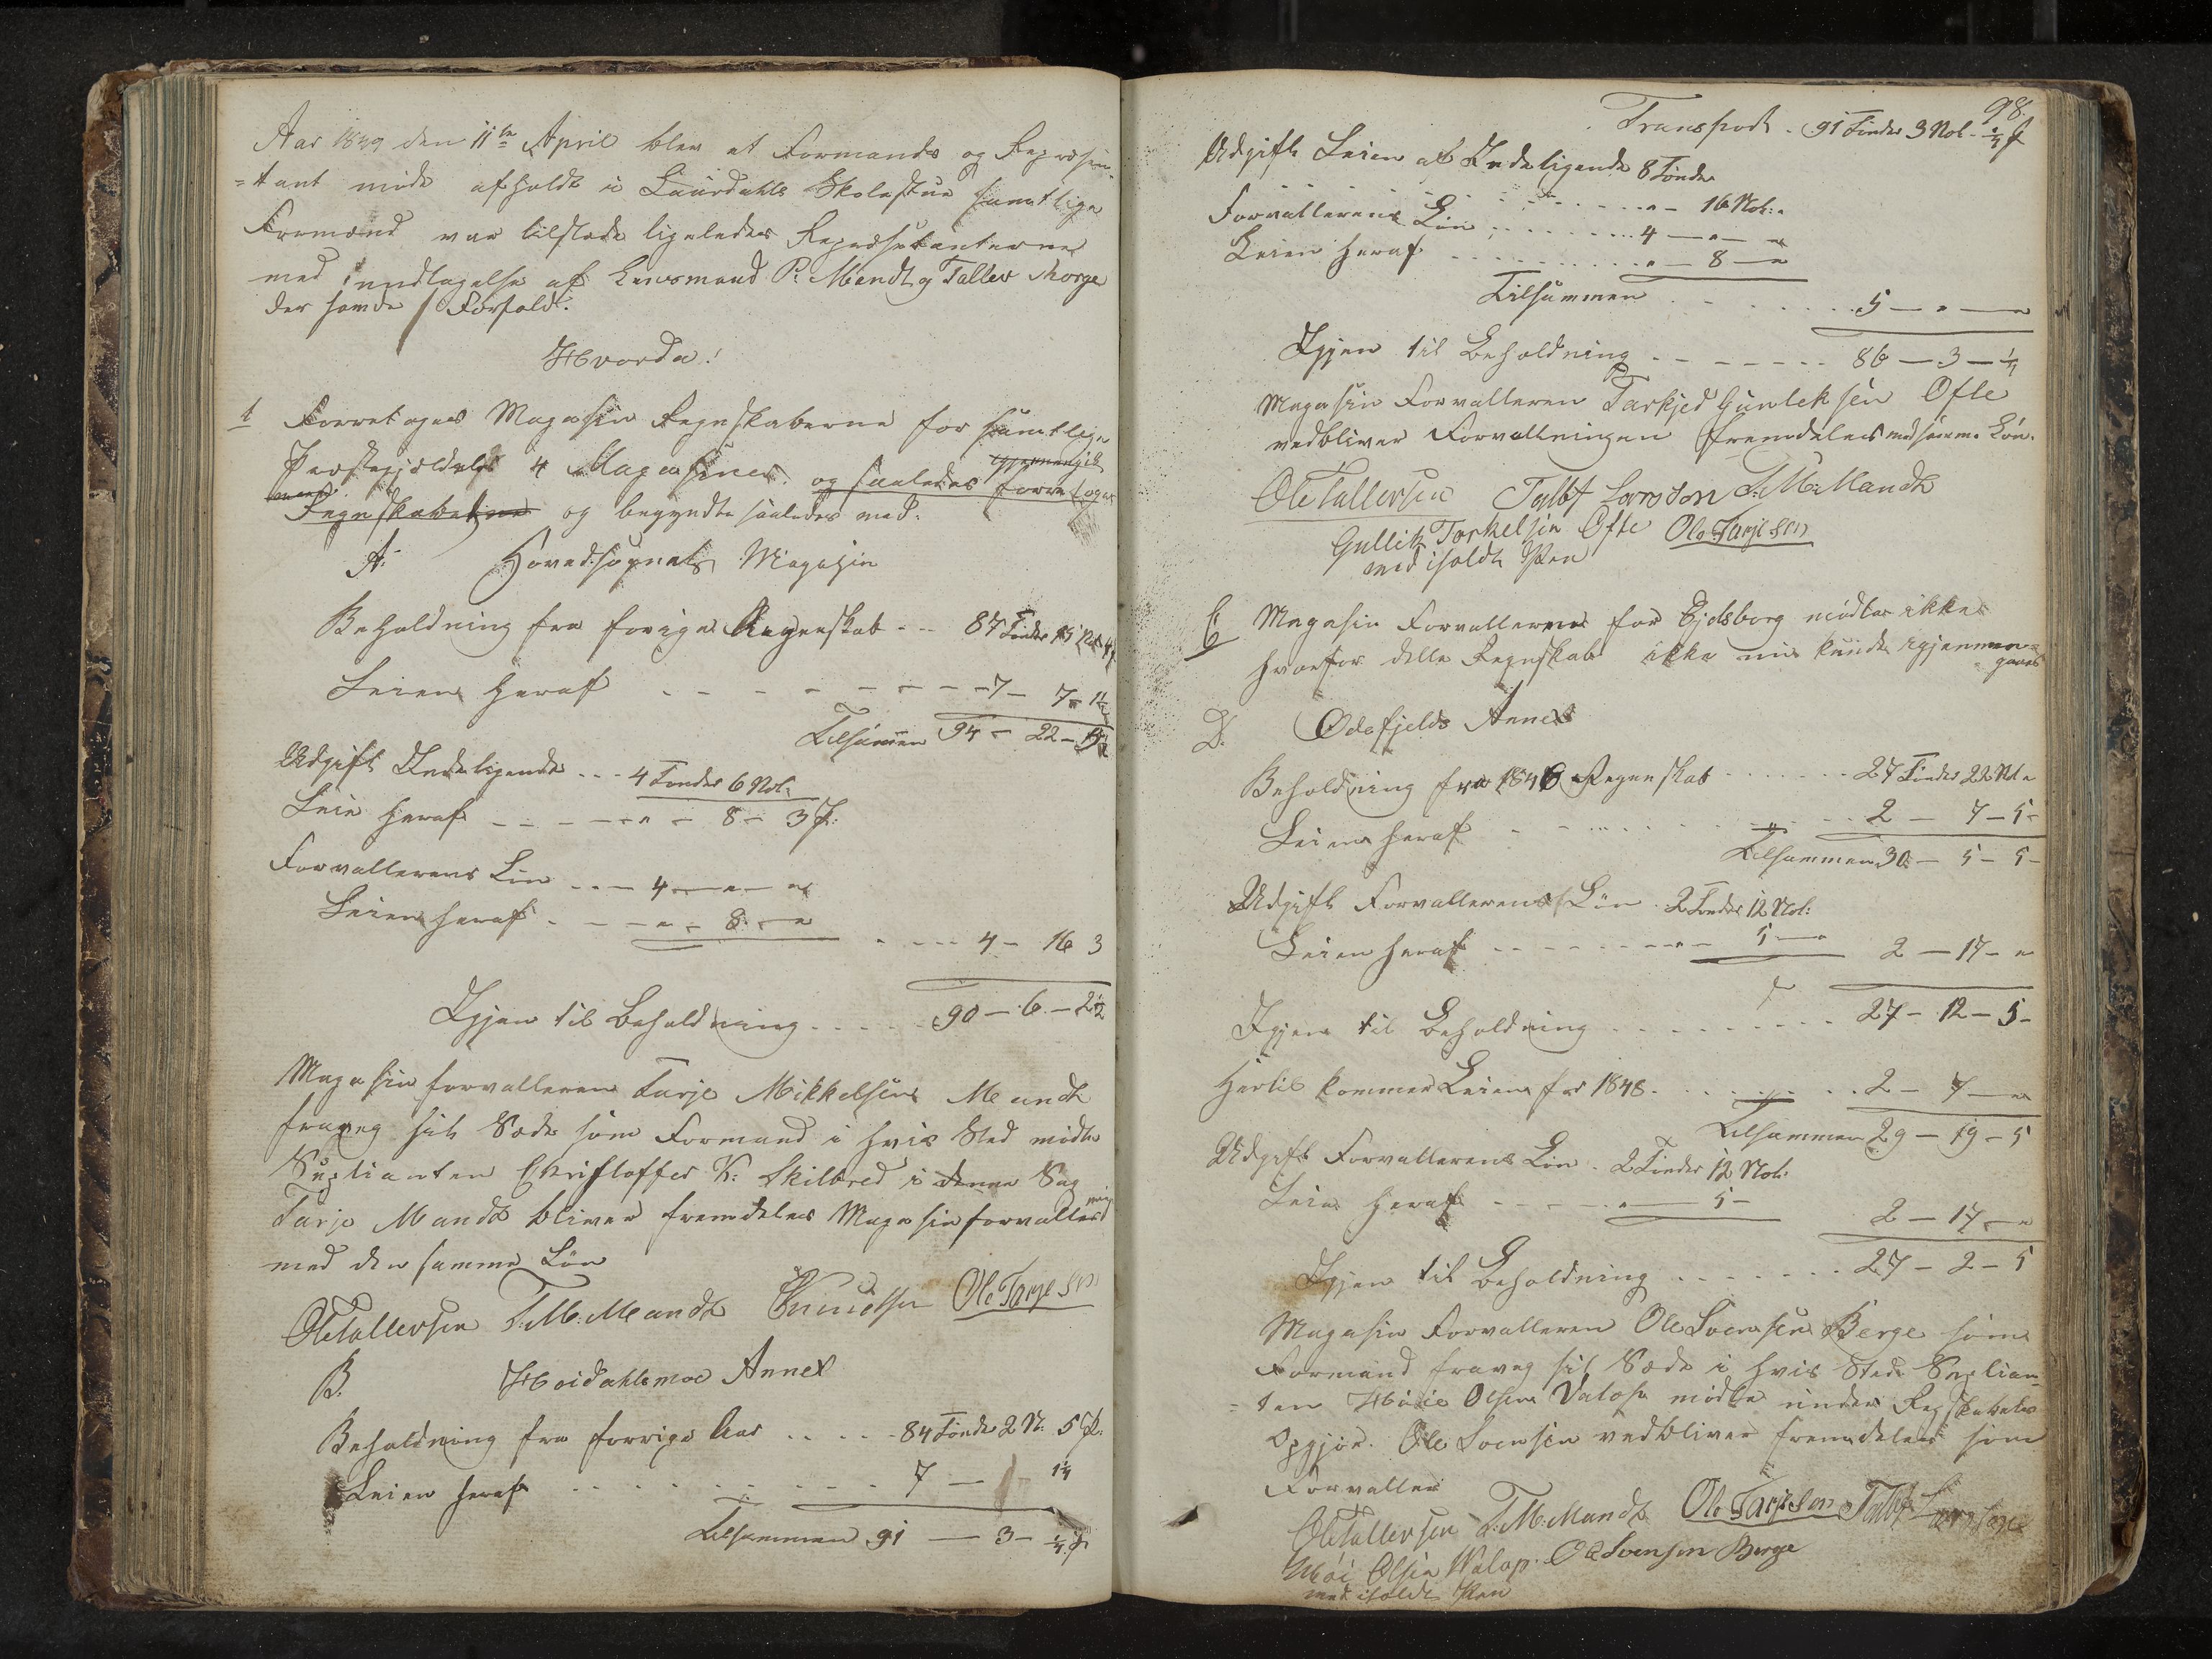 Aar 1849 den 11te April blev et Formands og Repræsen-
=tant møde afholdt i Laurdahls Skolestue samtlige
Formænd var tilstede ligeledes Repræsentanterne
med undtagelse af Lensmand P. Mandt og Tallev Norge
der havde Forfald.
Hvorda!
1 Forretoges Magasin Regnskaberne for samtlige
Præstegjældets 4 Magasiner. og saaledes forretoges
Regnskaberne og begyndte saaledes med.
A. Hovedsognets Magasin
Beholdning fra forige Regnskab -- 87 Tønder 15
Leien heraf - - - - - - - 7 - 7 - 1½
Tilsammen 94 - 22 - 5½
Udgift Udeligende --- 4 Tønder 6 Not.
Leie heraf - - - - - " - 8 - 3 f.
Forvalterens Løn --- 4 - " - "
Leien heraf - - - " - 8 - "
- --- 4 - 16 3
Igjen til Beholdning - - - - - 90 - 6 - 2½
Magasinforvalteren Tarje Mikkelsen Mandt
fraveg sit Sæde som Formand i hvis Sted mødte
Suplianten Christoffer K: Skilbred i denne Sag
Tarje Mandt bliver fremdeles Magasinforvalter
med den samme Løn
Ole Tallevsen T. M. Mandt CKnudsen Ole Tarjesen
B. Høidahlsmoe Annex
Beholdning fra forrige Aar - - - - - 84 Tønder 2 N. 5 f.
Leien heraf - - - - - - - - 7 — 1 1¼
Tilsammen 91 — 3 - ¼ f
98.
Transport - 91 Tønder 3 Not - ¼ f
Udgift Leien af Udeligende 8 Tønder
- - - - - - - - - - " - 16 Not. "
Forvalterens Løn - - - - - - - 4 — " — "
Leien heraf - - - - - - - - " — 8 — "
Tilsammen - - - - - 5 — " — "
Igjen til Beholdning - - - - - - - 86 — 3 — ¼
Magasin Forvalteren Tarkjed Gunleksen Ofte
vedbliver Forvaltningen fremdeles med samme Løn.
Ole Tallevsen Talef Larsson T. M. Mandt
Gullik Torkelsen Ofte Ole Tarjesen
med iholdt Pen
C Magasin Forvalteren for Ejdsborg mødte ikke
hvorfor dette Regnskab ikke nu kunde igjennem=
gaaes
D. Ødefjelds Annex
Beholdning fra 1846 Regnskab - - - - - - 27 Tønder 22 Not "
Leien heraf - - - - - - - - 2 — 7 - 5 -
Tilsammen 30 — 5 - 5 -
Udgift Forvalterens Løn . 2 Tønder 12 Not:
Leien heraf - - - - - - - - " — 5 — " 2 — 17 - "
Igjen til Beholdning - - - - - - - - - 27 - 12 - 5 -
Hertil kommer Leien for 1848 - - - - - - 2 - 7 — "
Tilsammen 29 — 19 - 5
Udgift Forvalterens Løn - 2 Tønder 12 Not:
Leien heraf - - - - - " — 5 - 2 — 17 — "
Igjen til Beholdning - - - - - - - 27 - 2 - 5
Magasin Forvalteren Ole Svensen Berge som
Formand fraveg sit Sæde i hvis Sted Suplian-
=ten Høie Olsen Valop mødte under Regskabets
Opgjør. Ole Svensen vedbliver fremdeles som
Forvalter
Ole Tallevsen T. M. Mandt Ole Tarjesen Talef Larsson
Høie Olsen Walop. Ole Svensen Berge
med iholdt Pen